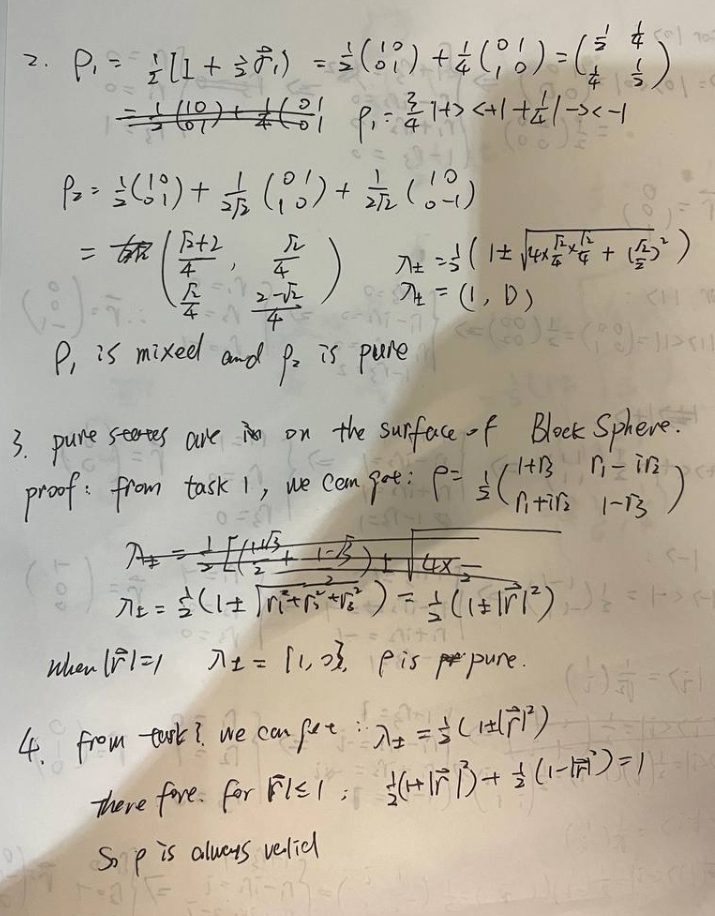 2. ρ₁ = 1/2 [I + 1/2 σ⃗₁) = 1/2 (1 0 0 1) + 1/4 (0 1 1 0) = (1/2 1/4 1/4 1/2)
= 1/2 (1 0 0 1) + 1/4 (0 1 ρ₁ = 3/4 |+><+| + 1/4 |-><-|
ρ₂ = 1/2 (1 0 0 1) + 1/2√2 (0 1 1 0) + 1/2√2 (1 0 0 -1)
= (√2+2/4, √2/4 √2/4 2-√2/4) λ± = 1/2 (1 ± √4×√2/4×√2/4 + (√2/2)²)
λ± = (1, 0)
ρ₁ is mixed and ρ₂ is pure
3. pure states are on the surface of Block Sphere.
proof: from task 1, we can get: ρ = 1/2 (1+r3 r1-ir2 r1+ir2 1-r3)
λ± = 1/2 [(1+r3/2 + 1-r3/2) ± √4×
λ± = 1/2 (1 ± √r1²+r2²+r3²) = 1/2 (1±|r⃗|²)
when |r⃗|=1 λ± = {1, 0}, ρ is pure.
4. from task 3, we can get: λ± = 1/2 (1±|r⃗|²)
there fore. for |r⃗|≤1, 1/2(1+|r⃗|²) + 1/2(1-|r⃗|²) = 1
So ρ is always valid